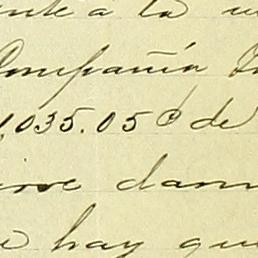 ente á la
Compañía
,035.05 ₡ de
dam
hay que